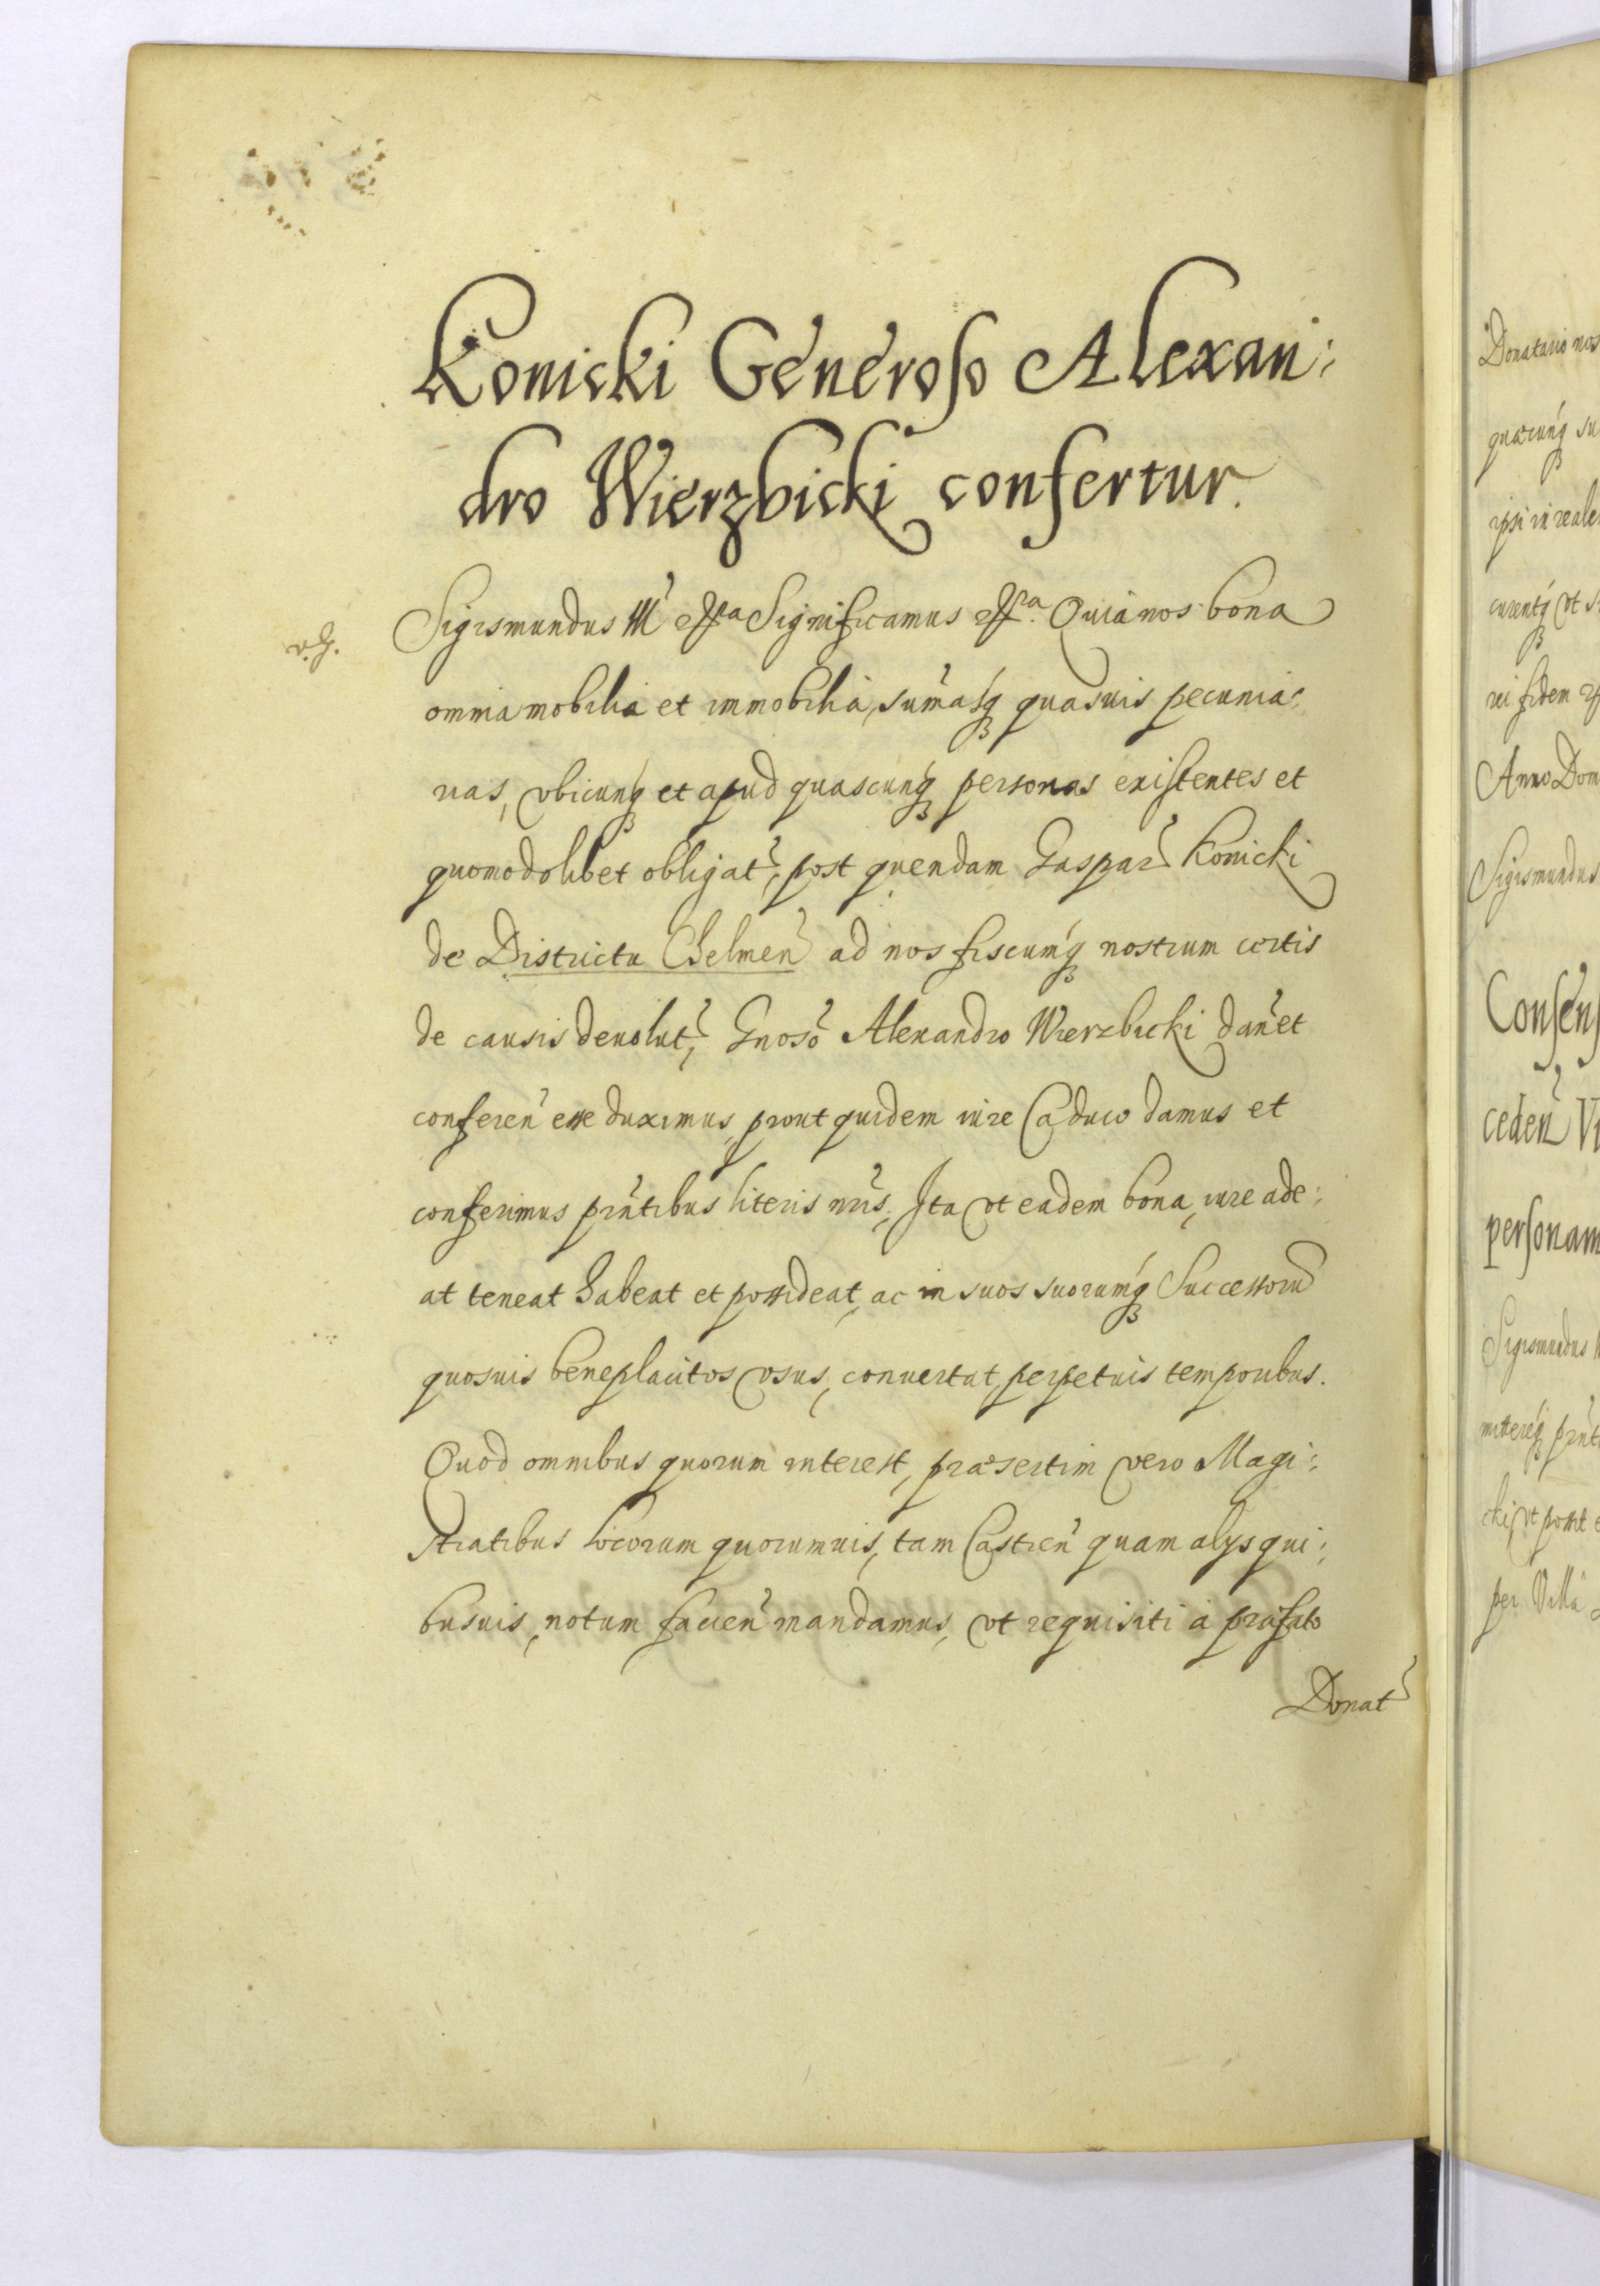 Konicki Generoso Alexan:
dro Wierzbicki confertur.
Sigismundus III etca Significamus etca. Quia nos bona
omnia mobilia et immobilia, sum̃asq₃ quasuis pecunia:
rias, vbicunq₃ et apud quascunq₃ personas existentes et
quomodolibet obligat̃, post quendam Gaspar̃ Konicki
de Districtu Chelmeñ ad nos fiscumq₃ nostrum certis
de causis deuolut̃, Gnoso Alexandro Wierzbicki dañ et
confereñ esse duximus, prout quidem iure Caduco damus et
conferimus pñtibus literis nr̃is, Ita vt eadem bona, iure ade:
at teneat habeat et possideat, ac in suos suorumq₃ Successorũ
quosuis beneplacitos vsus, conuertat, perpetuis temporibus.
Quod omnibus quorum interest, præsertim vero Magi:
stratibus locorum quorumuis, tam Castreñ quam alys qui:
busuis, notum facieñ mandamus, vt requisiti à præfato
Donat̃
Donatario nos
quæcunq₃ su
ipsi in reale
curentq₃ vt s
rei fidem
Anno Dom
Sigismundus
Consens
cedeñ Vi
personam
Sigismundus
mittereq₃ pñt
cki, vt possit e
per Villa